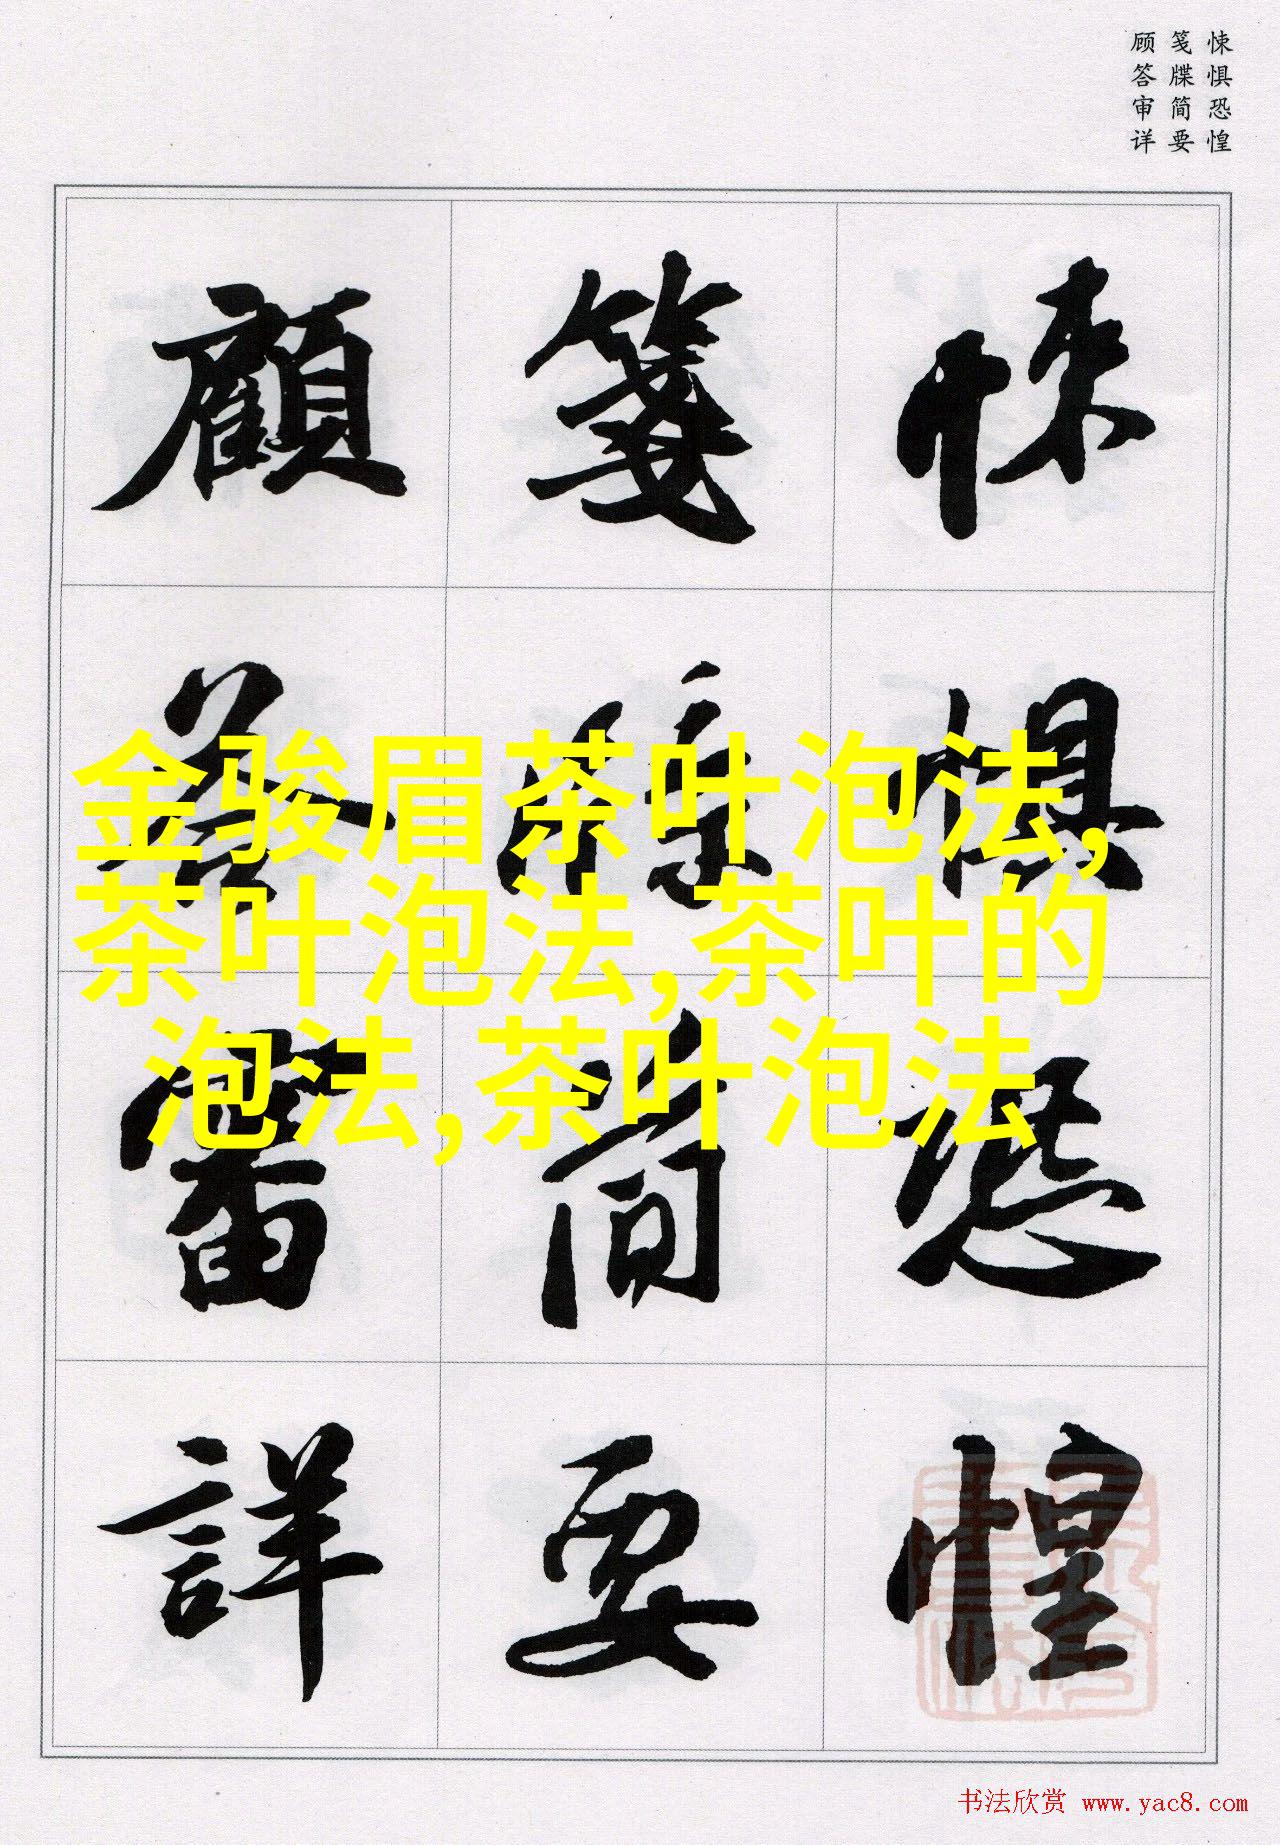 悚惧恐惶
笺牒简要
顾答审详
悚懼恐惶
箋牒简要
顧答審詳
金骏眉茶叶泡法,
茶叶泡法,茶叶的
泡法,茶叶泡法
书法欣赏 www.yac8.com